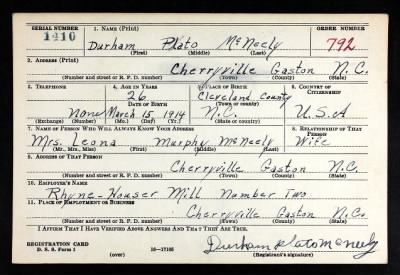 SERIAL NUMBER 1. NAME (Print) ORDER NUMBER
1410 Durham Plato McNeely 792
(First) (Middle) (Last)
2. ADDRESS (Print)
Cherryville Gaston N.C.
(Number and street or R. F. D. number) (Town) (County) (State)
3. TELEPHONE 4. AGE IN YEARS 5. PLACE OF BIRTH 6. COUNTRY OF
26 Cleveland County CITIZENSHIP
DATE OF BIRTH (Town or county)
None March 15, 1914 N.C. U.S.A
(Exchange) (Number) (Mo.) (Day) (Yr.) (State or country)
7. NAME OF PERSON WHO WILL ALWAYS KNOW YOUR ADDRESS 8. RELATIONSHIP OF THAT
PERSON
Mrs. Leona Murphy McNeely Wife
(Mr., Mrs., Miss) (First) (Middle) (Last)
9. ADDRESS OF THAT PERSON
Cherryville Gaston N.C.
(Number and street or R. F. D. number) (Town) (County) (State)
10. EMPLOYER'S NAME
Rhyne-Houser Mill Number Two
11. PLACE OF EMPLOYMENT OR BUSINESS
Cherryville Gaston N.C.
(Number and street or R. F. D. number) (Town) (County) (State)
I AFFIRM THAT I HAVE VERIFIED ABOVE ANSWERS AND THAT THEY ARE TRUE.
REGISTRATION CARD
D. S. S. Form 1 16-17105 Durham Plato McNeely
(over) (Registrant's signature)